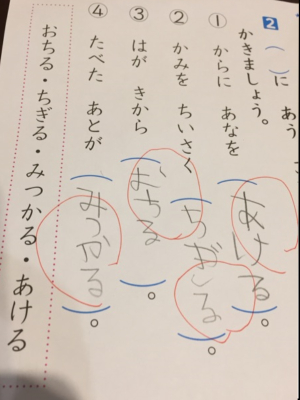 2 （ ）に あう こ
かきましょう。
① からに あなを （あける）。
② かみを ちいさく （ちぎる）。
③ はが きから （おちる）。
④ たべた あとが （みつかる）。
おちる・ちぎる・みつかる・あける